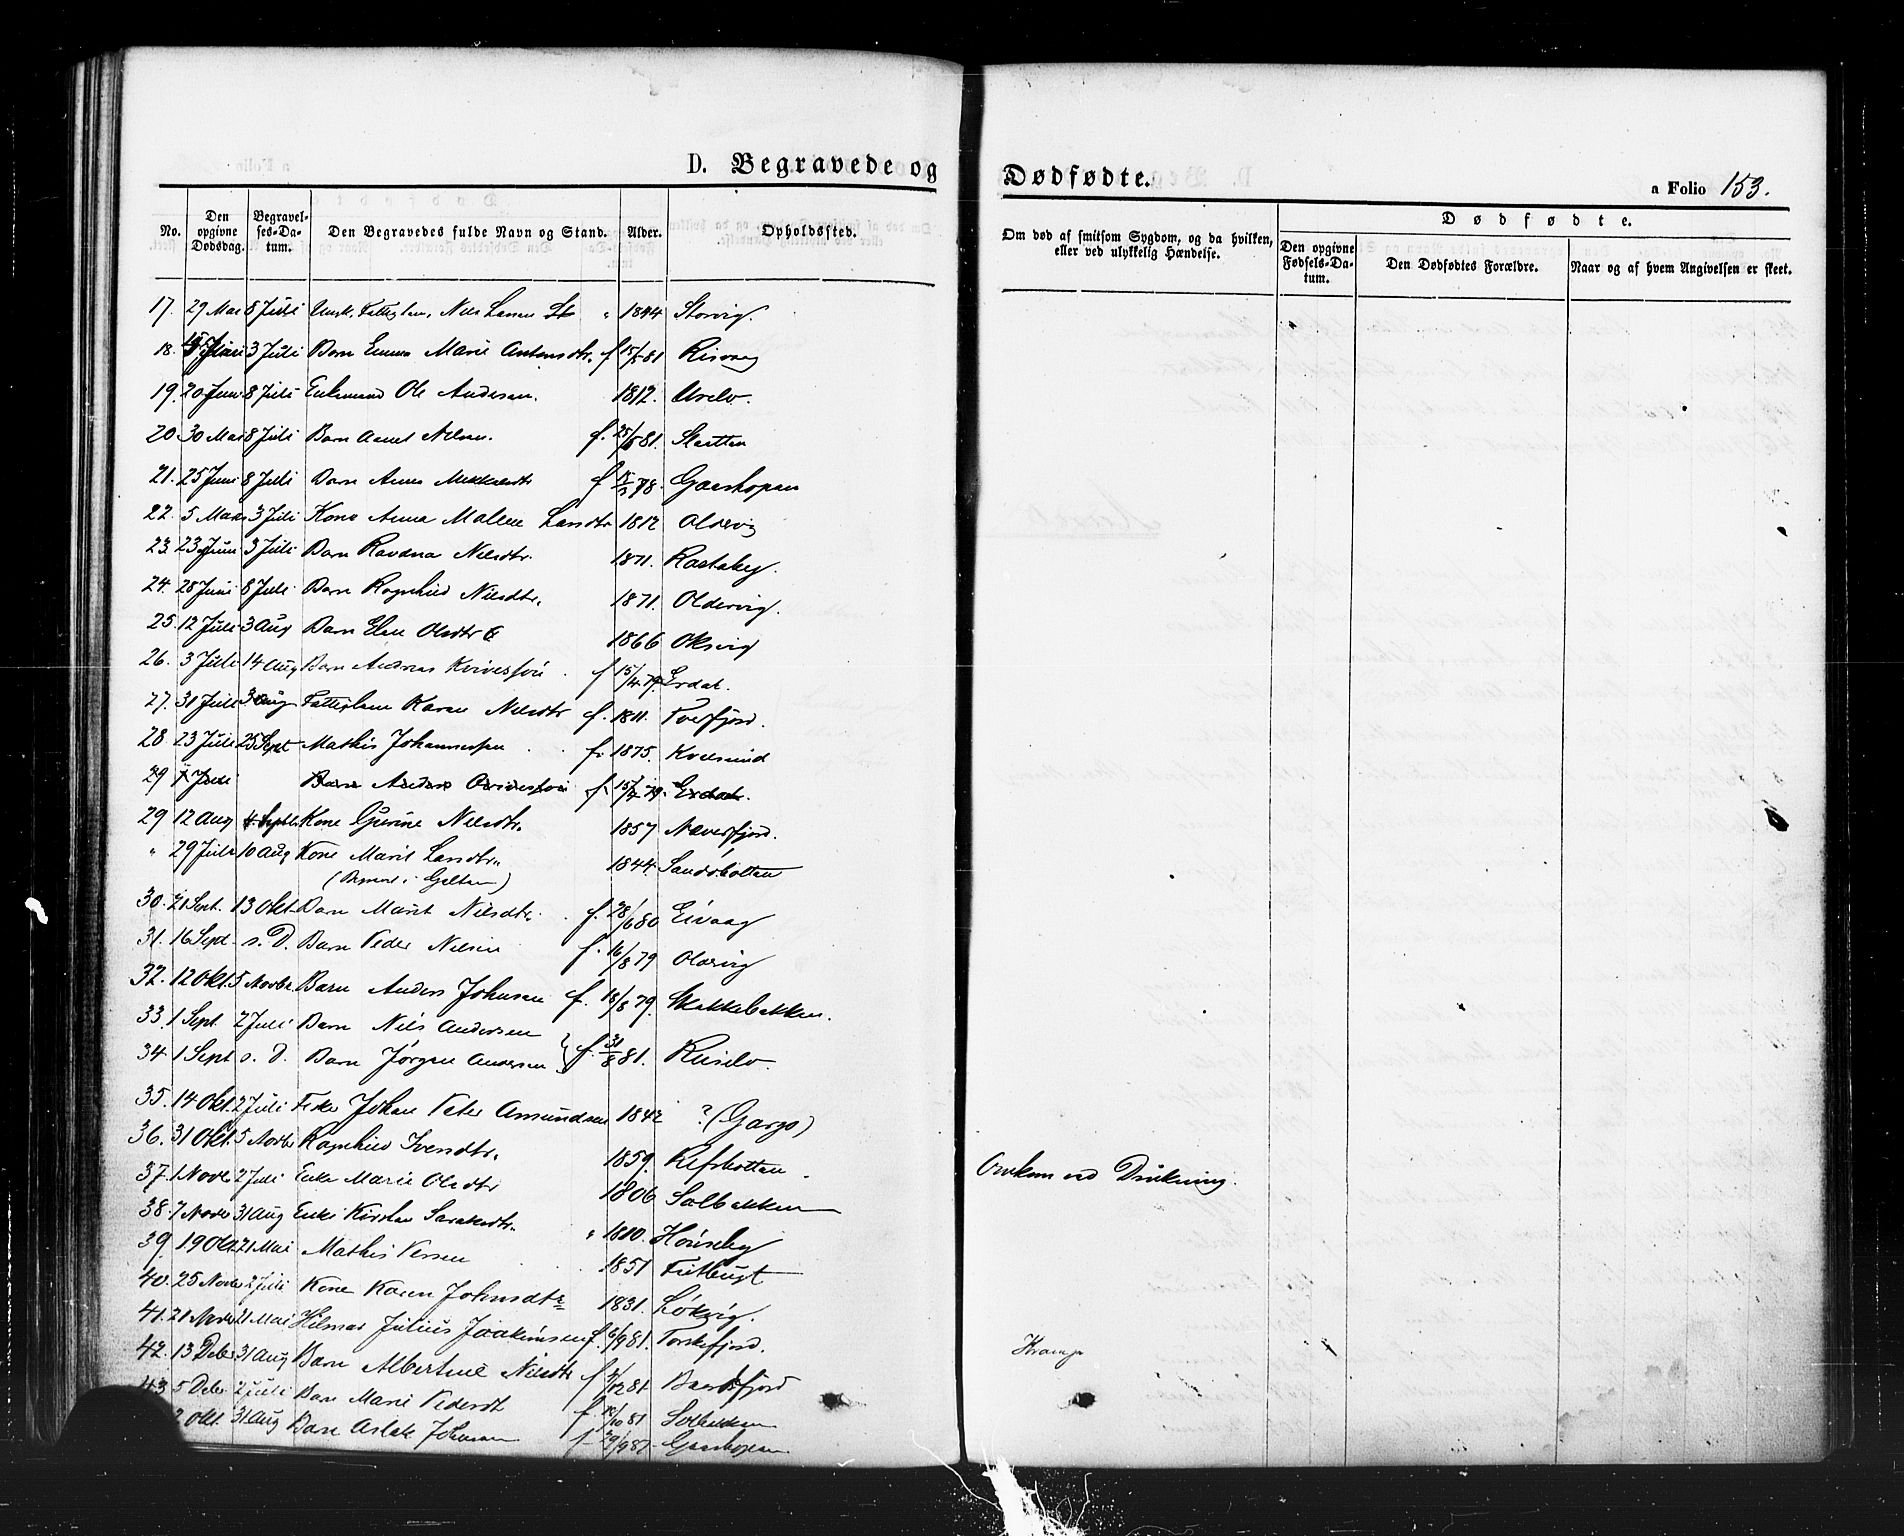 D. Begravede og Dødfødte.
a Folio 153.
No. Den opgivne Dødsdag. Begravelses-Datum. Den Begravedes fulde Navn og Stand. Alder. Opholdssted. Om død af smitsom Sygdom, og da hvilken, eller ved ulykkelig Hændelse. Dødfødte. Den opgivne Fødsels-Datum. Den Dødfødtes Forældre. Naar og af hvem Angivelsen er skeet.
17. 29 Mai 8 Juli Nils Larsen 1844 Storvig.
18. 3 Juli Barn Emma Marie Antonsdtr. f 15/5 81 Risvaag
19. 20 Juni 8 Juli Enkemand Ole Andersen. 1812.
20 30 Mai 8 Juli Barn Nilsen. f. 25/5 81.
21. 25 Juni 8 Juli Barn Anna Mikkelsdtr f 78. Gaashopen
22. 5 Mars 3 Juli Kone Anna Malene Larsdtr 1812 Oldervig
23. 23 Juni 3 Juli Barn Ravdna Nilsdtr. 1871. Rastaby.
24. 28 Juni 8 Juli Barn Ragnhild Nilsdtr. 1871. Oldervig.
25. 12 Juli 3 Aug Barn Elen Olsdtr 1866 Oksvig
26. 3 Juli 14 Aug Barn Andreas f 15/4 79. Erdal.
27. 31 Juli 3 Aug Fattiglem Karen Nilsdtr f. 1811. Tverfjord.
28. 23 Juli 25 Sept Mathis Johannessen f. 1875. Kvalsund
29 Juli Barn Anders f. 15/4 79. Erdal.
29 12 Aug 4 Septb Kone Gurine Nilsdtr. 1857 Næverfjord.
" 29 Juli 10 Aug Kone Marit Larsdtr. 1844 Sandøbotten
(Begravet i )
30. 21 Sept. 13 Okt. Barn Marit Nilsdtr. f. 28/6 80 Eivaag
31. 16 Sept. s. D. Barn Peder Nilsen f. 16/8 79 Oldervig
32. 12 Okt. 5 Novbr Barn Anders Johnsen f. 18/8 79. Skakkebakken.
33. 1 Sept 2 Juli Barn Nils Andersen
34. 1 Sept s. d. Barn Jørgen Andersen f. 31/8 81. Russelv.
35. 14 Okt. 2 Juli Fisker Johan Peter Amundsen 1842 ? (Gargo)
36. 31 Okt. 5 Novbr Ragnhild Iversdtr. 1859. Refsbotten
37. 1 Novb 2 Juli Enke Marie Olsdtr 1806 Solbakken Omkom ved Drukning.
38. 7 Novbr 31 Aug Enke Kirsten 1810. Hønseby
39. 19 Okt 21 Mai Mathis Persen 1851
40. 25 Novbr 2 Juli Kone Karen Johnsdtr 1831. Løkvig.
41. 21 Novbr 21 Mai Hilmar Julius Joakimsen f. 6/9 81. Torskefjord.
42. 13 Debr 31 Aug Barn Albertine Nilsdtr f 12 81 Krampe
43 5 Debr 2 Juli Barn Marie Pedersdt f. 10 81 Solbakken
Okt. 31 Aug Barn Aslak Johnsen f 29/9 Gaashopen